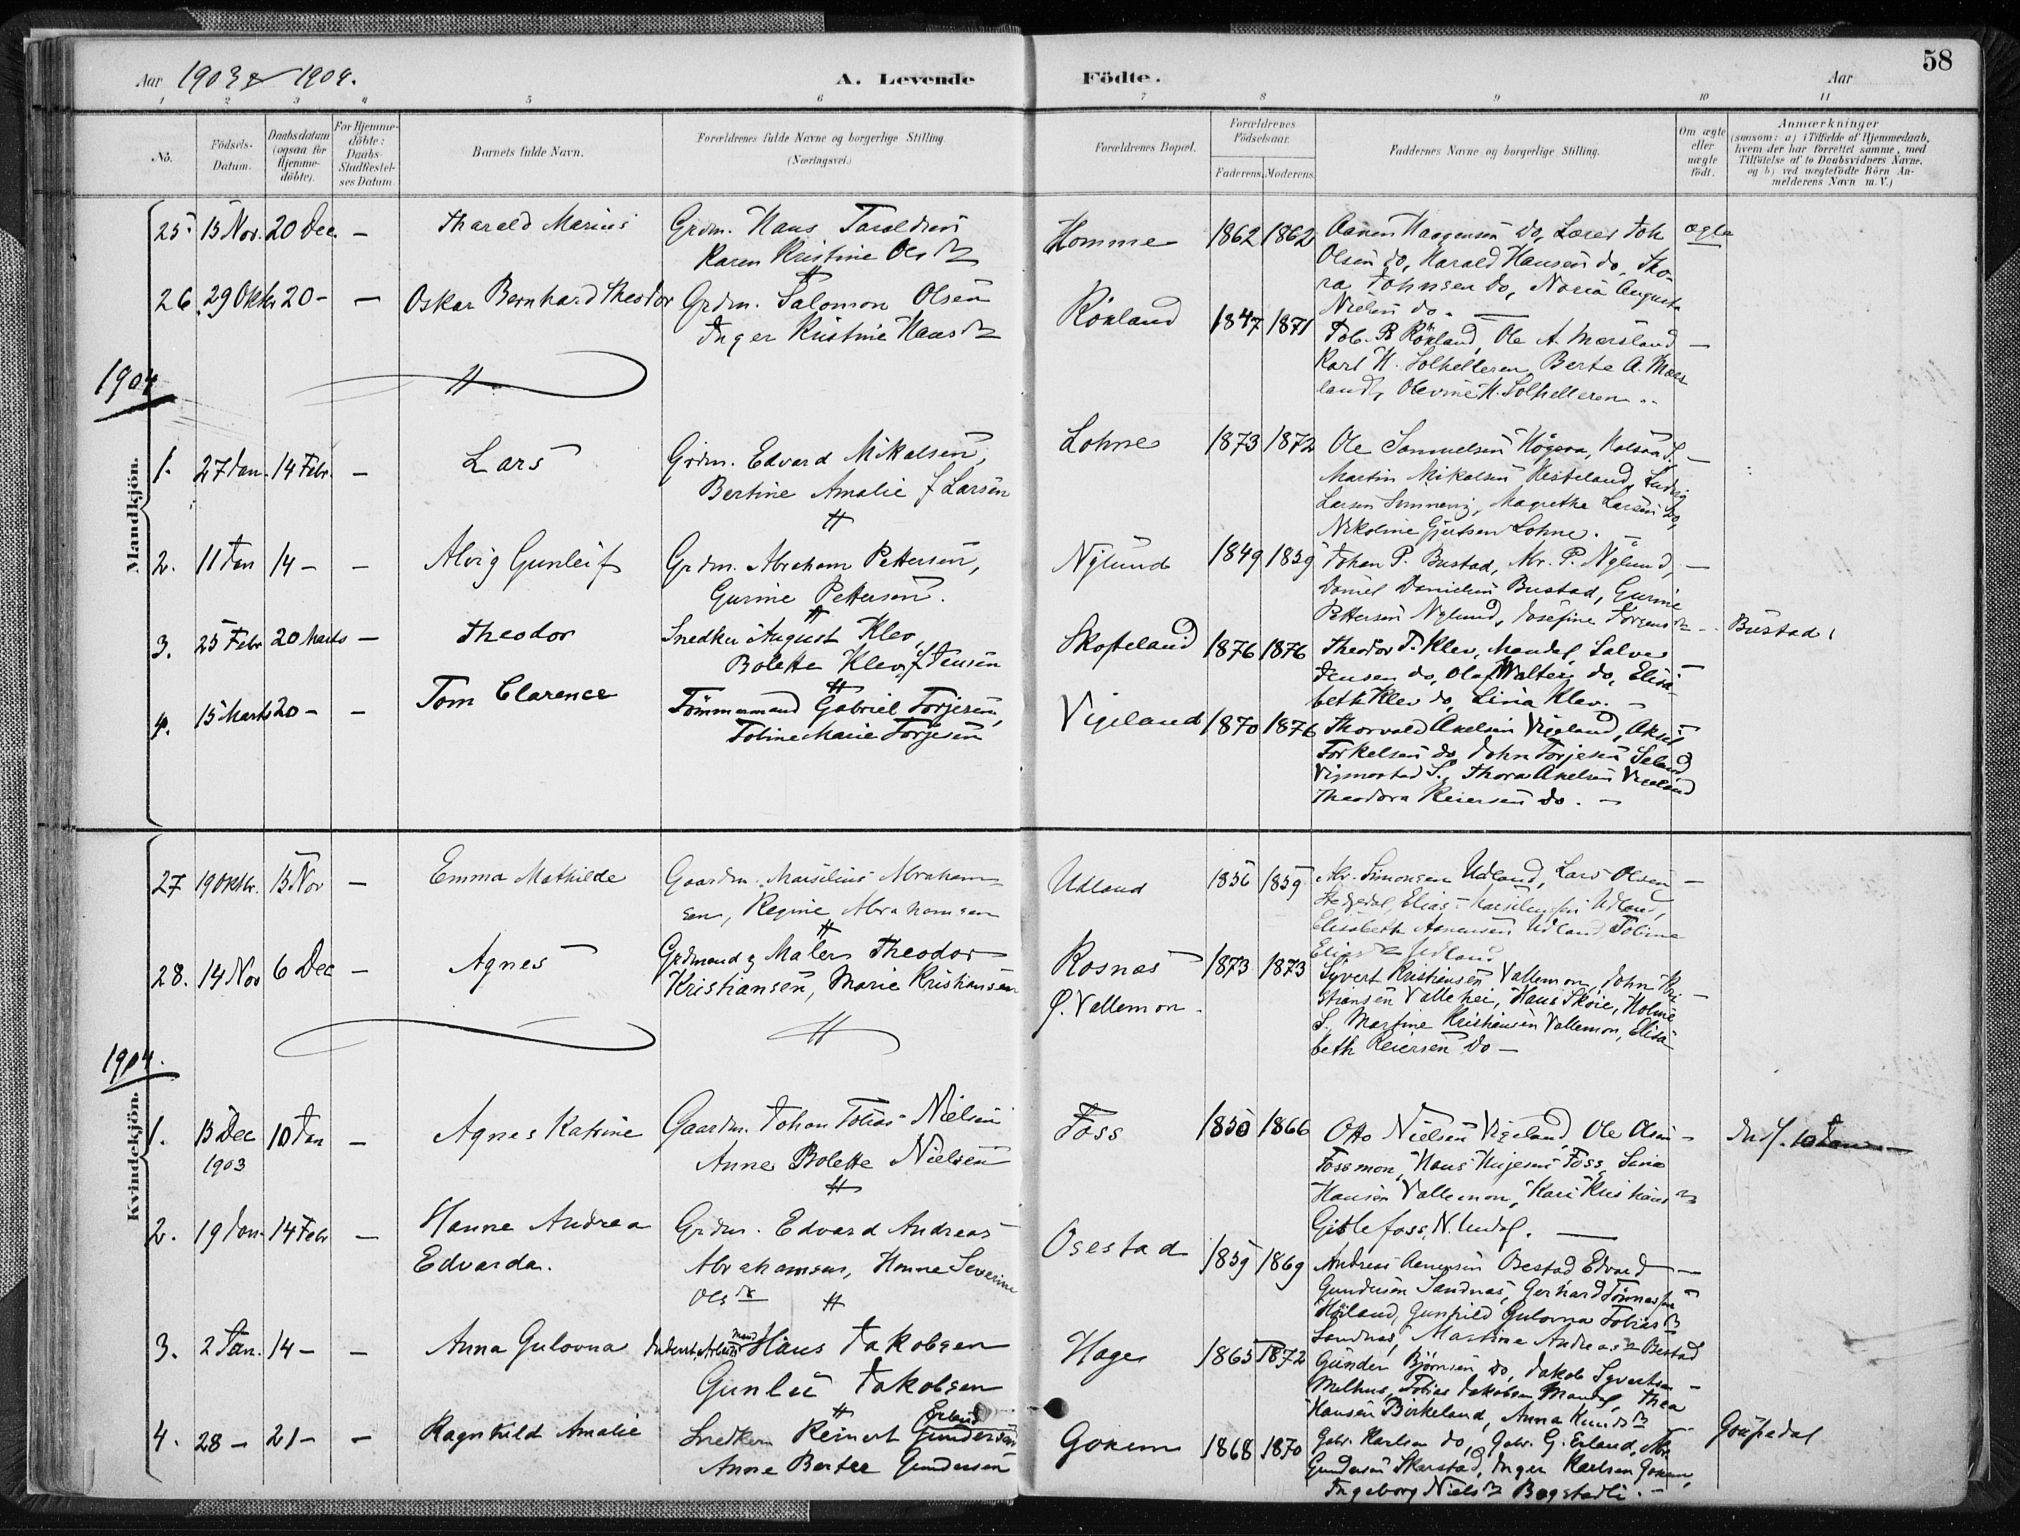 Aar 1903 & 1904.
A. Levende Födte.
Aar
58
1 2 3 4 5 6 7 8 9 10 11
No.
Födsels-Datum.
Daabsdatum (ogsaa for Hjemme-döbte).
For Hjemme-döbte: Daabs-Stadfæstel-ses Datum.
Barnets fulde Navn.
Forældrenes fulde Navne og borgerlige Stilling.
(Næringsvei.)
Forældrenes Bopæl.
Forældrenes Födselsaar.
Faderens. Moderens.
Faddernes Navne og borgerlige Stilling.
Om ægte eller uægte födt.
Anmærkninger
(saasom: a) i Tilfælde af Hjemmedaab, hvem der har forrettet samme, med Tilföielse af to Daabsvidners Navne, og b) ved uægtefödte Börn An-melderens Navn m. V.)
Mandkjön.
25. 15 Nov. 20 Dec. — Tharald Marius
Grdm. Hans Taraldsen
Karen Kristine Olsdtr
Homme 1862 1862
Aanen Haagensen do, Lærer Joh
Olsen do, Harald Hansen do, Tho-
ra Johnsen do, Augusta
Nielsen do. —
ægte
26. 29 Oktbr 20 - — Oskar Bernhard Theodor
Grdm. Salomon Olsen
Inger Kristine Hansdtr
Rökland 1847 1871
Tob. R Rökland, Ole A. Mærsland —
Karl H. Solhelleren, Berte A. Mærs
land, Olevine H. Solhelleren
1904
1. 27 Jan. 14 Febr. — Lars
Grdm. Edvard Mikalsen,
Bertine Amalie f Larsen
Lohne 1873 1872
Ole Samuelsen Högera, S. —
Martin Mikalsen Kesteland, Ludvig
Larsen, Magrethe Larsen do,
Nikoline Gjertsen Lohne.
2. 11 Jan 14 - — Alvig Gunleif
Grdm. Abraham Pettersen,
Gurine Pettersen.
Nylund 1849 1859
Johan P. Bustad, Abr. P. Nylund, —
Daniel Danielsen Bustad, Gurine
Pettersen Nylund, Josefine Törgensdtr - Bustad
3. 25 Febr 20 Marts — Theodor
Snedker August Klev,
Bolette Klev, f Jensen
Skofteland 1876 1876
Theodor T. Klev, Mandal, Salve
Jensen do, Olaf Walter do, Elisa
beth Klev do, Lina Klev. —
4. 15 Marts 20 - — Tom Clarence
Tömmermand Gabriel Torjesen,
Toline Marie Torjesen
Vigeland 1870 1876
Thorvald Axelsen Vigeland, Aksel
Torkelsen do, John Torjesen Seland
Vigmostad S., Thora Axelsen Vigeland
Theodora Reiersen do. —
Kvindekjön.
27 19 Oktbr. 15 Nov — Emma Mathilde
Gaardm. Marselius Abraham-
sen, Regine Abrahamsen
Udland 1856 1859
Abr. Simonsen Udland, Lars Olsen —
Elias Marseliussen Udland,
Elisabeth Aanensen Udland Toline
Eliasdtr Udland
28. 14 Nov 6 Dec — Agnes
Grdmand & Maler Theodor
Kristiansen, Marie Kristiansen
Rosnæs 1873 1873
P. Vallemon.
Syvert Kristiansen Vallemon, John Kri
stiansen Vallehei, Hans Skoie, Holme
S. Martine Kristiansen Vallemon, Elisa
beth Reiersen do —
1904.
1. 13 Dec 10 Jan — Agnes Katrine
1903
Gaardm. Johan Tobias Nielsen
Anne Bolette Nielsen
Foss 1850 1866
Otto Nielsen Vigeland, Ole Olsen —
Fossmon, Hans Foss, Lina
Hansen Vallemon, Kari Kristiansdtr
Gislefoss, N. Undal. —
Indf. 10 Jan
2. 19 Jan. 14 Febr — Hanne Andrea
Edvarda.
Grdm. Edvard Andreas
Abrahamsen, Hanne Severine
Olsdtr
Osestad 1859 1869
Andreas Aanensen Osestad Edvard —
Gundersen Sandnæs, Gerhard Tönnessen
Höiland, Gunhild Gulovna Tobiasdtr
Sandnæs, Martine Andreasdtr Osestad
3. 2 Jan. 14 - — Anna Gulovna
Hans Jakobsen
Gunlu Jakobsen
Hage 1865 1872
Gunder Bjørnsen do, Jakob Syvertsen —
Melhus, Tobias Jakobsen Mandal, Thea
Hansen Birkeland, Anna Knudsdtr
4. 28 - 21 - — Ragnhild Amalie
Snedker Reinert Gundersen Erland
Anne Bertee Gundersen
Gokem 1868 1870
Gabr. Karlsen do, Gabr. G. Erland, Abr.
Gundersen Skarstad, Inger Karlsen Gokem,
Ingeborg Nielsdtr Bogstadli. —